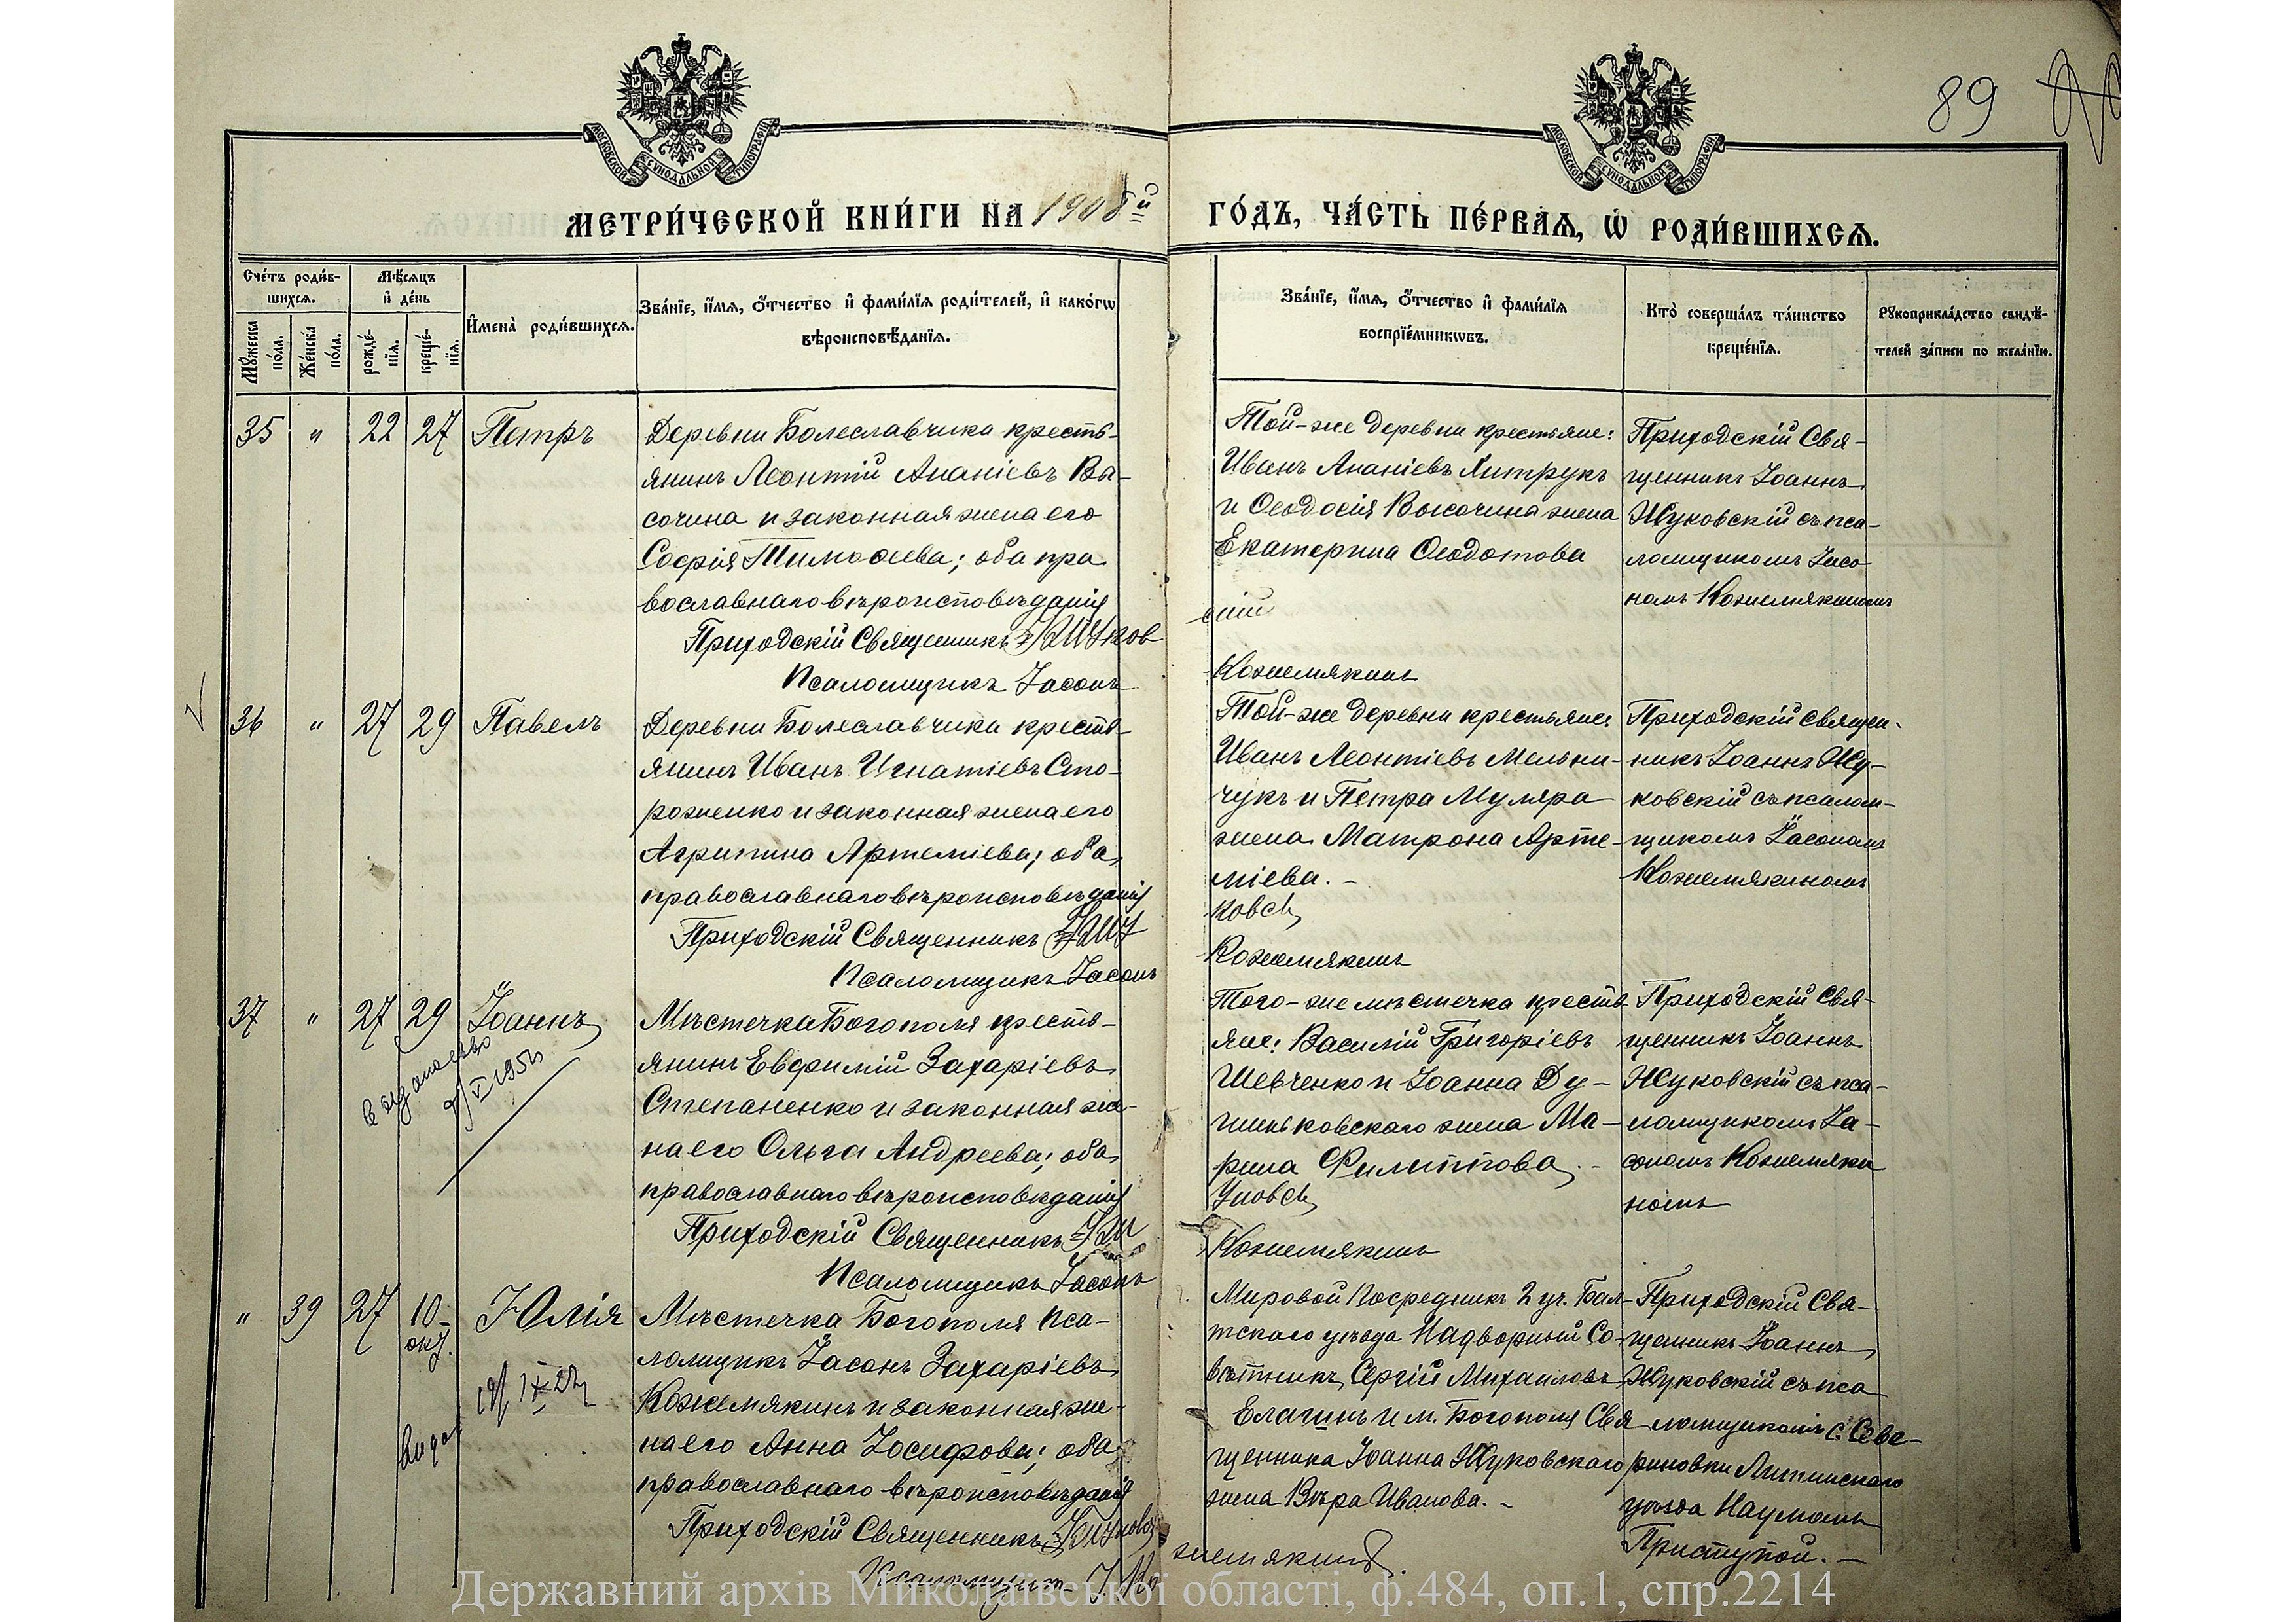 89
МОСКОВСКОЙ СУНОДАЛЬНОЙ ТИПОГРАФІИ
МОСКОВСКОЙ СУНОДАЛЬНОЙ ТИПОГРАФІИ
МЕТРИ́ЧЕСКОЙ КНИ́ГИ НА 1908й ГО́ДЪ, ЧА́СТЬ ПЕ́РВАѦ, Ѡ РОДИ́ВШИХСѦ.
Сче́тъ роди́в-
шихсѧ.
Мꙋ́жеска
по́ла.
Же́нска
по́ла.
Мѣ́сѧцъ
и҆ де́нь
рожде́-
нїѧ.
креще́-
нїѧ.
И҆мена̀ роди́вшихсѧ.
Зва́нїе, и҆́мѧ, ѻ҆́тчество и҆ фами́лїѧ роди́телей, и҆ како́гѡ
вѣроисповѣ́данїѧ.
Зва́нїе, и҆́мѧ, ѻ҆́тчество и҆ фами́лїѧ
воспрїе́мникѡвъ.
Кто̀ соверша́лъ та́инство
креще́нїѧ.
Рꙋкоприкла́дство свидѣ́-
телей за́писи по жела́нїю.
35 " 22 27 Петръ
Деревни Болеславчика кресть-
янинъ Леонтій Ананіевъ Вы-
сочина и законная жена его
Софія Тимоѳеева; оба пра
вославнаго вѣроисповѣданія
Приходскій Священникъ І Жуков
скій
Псаломщикъ Іасонъ
Кожемякинъ
Той-же деревни крестьяне:
Иванъ Ананіевъ Хитрукъ
и Ѳеодосія Высочина жена
Екатерина Ѳеодотова
Приходскій Свя-
щенникъ Іоаннъ
Жуковскій съ пса-
ломщикомъ Іасо
номъ Кожемякинымъ
36 " 27 29 Павелъ
Деревни Болеславчика кресть-
янинъ Иванъ Игнатіевъ Сто-
роженко и законная жена его
Агрипина Артеміева; оба
православнаго вѣроисповѣданія
Приходскій Священникъ І Жу
ковскій
Псаломщикъ Іасонъ
Кожемякинъ
Той-же деревни крестьяне:
Иванъ Леонтіевъ Мельни-
чукъ и Петра Муляра
жена Матрона Арте-
міева. -
Приходскій священ-
никъ Іоаннъ Жу-
ковскій съ псалом-
щикомъ Іасономъ
Кожемякиномъ
37 " 27 29 Іоаннъ
Мѣстечка Богополя кресть-
янинъ Евфимій Захаріевъ
Степаненко и законная же-
на его Ольга Андреева; оба
православнаго вѣроисповѣданія
Приходскій Священникъ І Ж
уковскій
Псаломщикъ Іасонъ
Кожемякинъ
Того-же мѣстечка кресть
яне: Василій Григоріевъ
Шевченко и Іоанна Ду-
Ма-
рина Филиппова. -
Приходскій Свя-
щенникъ Іоаннъ
Жуковскій съ пса-
ломщикомъ Іа-
сономъ Кожемяки
номъ
" 39 27 10-
окт.
Юлія
Мѣстечка Богополя пса-
ломщикъ Іасонъ Захаріевъ
Кожемякинъ и законная же-
на его Анна Іосифова; оба
православнаго вѣроисповѣданія
Приходскій Священникъ І Жуковс
Псаломщикъ І Ко
жемякинъ
Мировой Посредникъ 2 уч. Бал-
тскаго уѣзда Надворный Со-
вѣтникъ Сергій Михаиловъ
Елагинъ и м. Богополя Свя
щенника Іоанна Жуковскаго
жена Вѣра Иванова. -
Приходскій Свя-
щенникъ Іоаннъ
Жуковскій съ пса
ломщикомъ с. Севе-
риновки
уѣзда Наумомъ
Приступой. -
Державний архів Миколаївської області, ф.484, оп.1, спр.2214